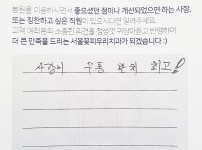 본원을 이용하시면서 좋으셨던 점이나 개선되었으면 하는 사항,
또는 칭찬하고 싶은 직원이 있으시다면 알려주세요.
고객 여러분의 소중한 의견을 정성껏 귀담아듣고 반영하여
더 큰 만족을 드리는 서울꽃피우리치과가 되겠습니다 :)
최고!